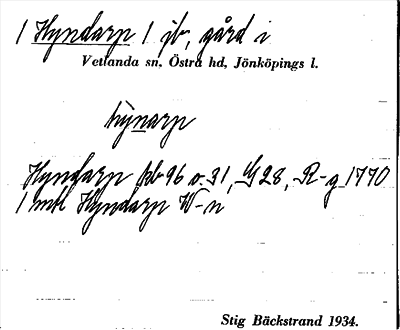 1 Hyndarp 1 jb, gård i
Vetlanda sn, Östra hd, Jönköpings l.
hỳnarp
Hyndarp kb 96 o. 31, G 28, R-g 1770
1 mtl Hyndarp W-n
Stig Bäckstrand 1934.